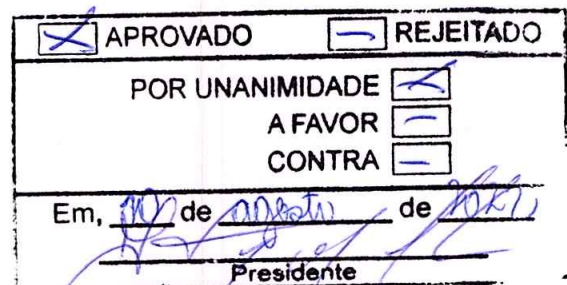 APROVADO REJEITADO
POR UNANIMIDADE
A FAVOR
CONTRA
Em, 10 de agosto de
Presidente